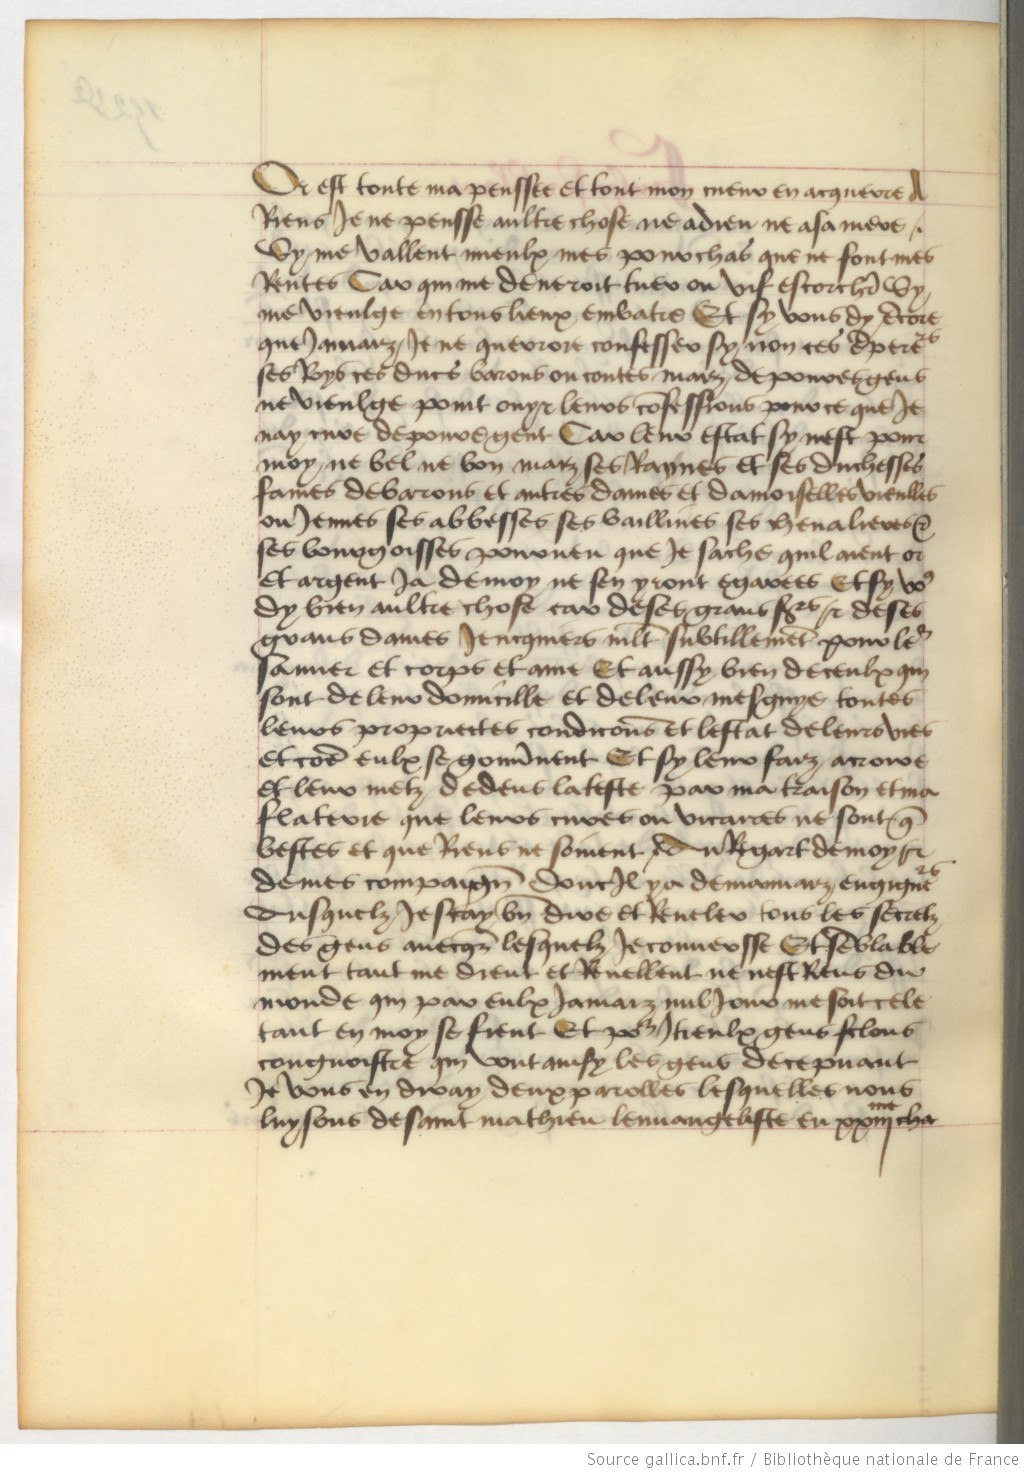 Or est toute ma penssee et tout mon cueur en acquerre A
Riens Je ne pensse aultre chose ne a dieu ne a sa mere /.
Sy me vallent mieulx mes pourchas que ne font mes
Rentes Car qui me deueroit tuer ou vif escorchr̃ Sy
me vieulge en tous lieux embatre Et sy vous dy ẽcore
que Jamarz / Je ne querroie confesser sy non ces Empererˢ
ses Roys ces ducs barons ou contes marz de poures gens
ne vieulge point ouyr leurs cõfessions pource que Je
nay cure de poure gent Car leur estat sy nest pour
moy ne bel ne bon marz ses Raynes et ses duchesses
fames de barrons et autres dames et damoiselles vieulles
ou Jennes ses abbesses ses baillines ses chenalieres et
ses bourgoisses pourueu que Je sache quil aient or
et argent Ja de moy ne sen yront egarees Et sy voꝰ
dy bien aultre chose car de ses grans sg̃rs et de ses
grans dames Jencquiers mlt̃ subtillemẽt pour leˢ
sauuer et corps et ame Et aussy bien de ceulx qui
sont de leur domicille et de leur mesgnye toutes
leurs proprietes condicõns et lestat de leurs vies
et cõe eulx se gouu̾nent Et sy leur farz acroire
et leur metz dedens la teste par ma traison et ma
flaterie que leurs cures ou vicaires ne sont q̃
bestes et que Riens ne soiuent Au Regart de moy et
de mes compaign̄ Dont Il y a de mauuarz engignerˢ
Ausquelz Je scay bn̄ dire et Reueler tous les secretz
des gens auecqz lesquelz Je conuersse Et sẽblable
ment tant me dient et Reuellent ne nest Riens du
monde qui par eulx Jamarz nul Jour me soit cele
tant en moy se fient Et poʳ Itieulx gens felons
congnoistre qui vont ainsy les gens decepuant
Je vous en diray deux parolles lesquelles nous
luysons de saint mathieu leuuangeliste en xxiiiᵐᵉ cha
Source gallica.bnf.fr / Bibliothèque nationale de France